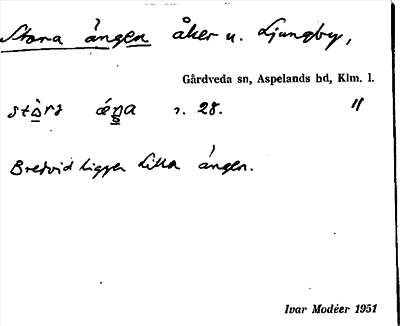 Stora ången åker u. Ljungby,
Gårdveda sn, Aspelands hd, Klm. l.
r. 28. "
Bredvid ligger Lilla ången.
Ivar Modéer 1951